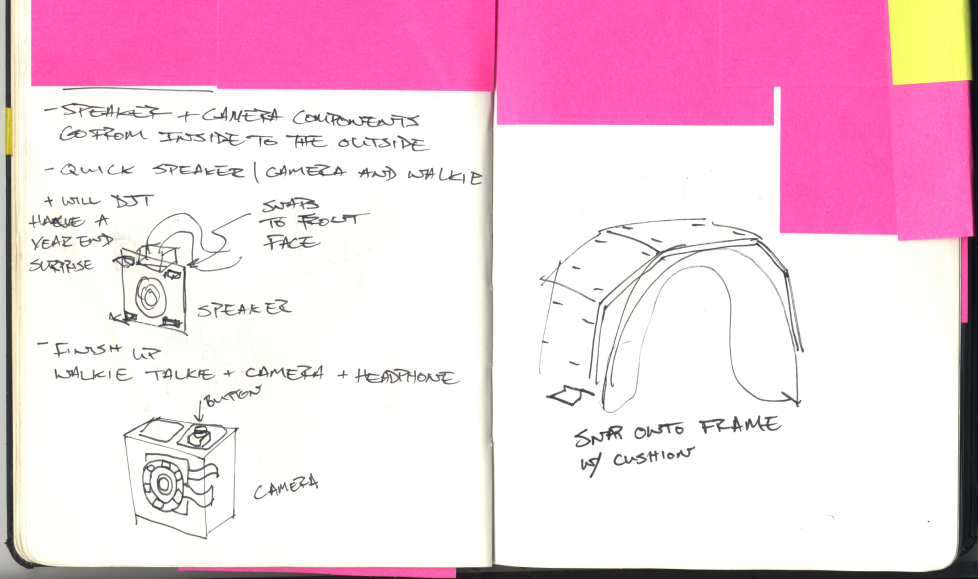 - SPEAKER + CAMERA COMPONENTS
GO FROM INSIDE TO THE OUTSIDE
- QUICK SPEAKER / CAMERA AND WALKIE
+ WILL
HAVE A
YEAR END
SURPRISE
SNAPS
TO FRONT
FACE
SPEAKER
- FINISH UP
WALKIE TALKIE + CAMERA + HEADPHONE
BUTTON
CAMERA
SNAP ONTO FRAME
W/ CUSHION